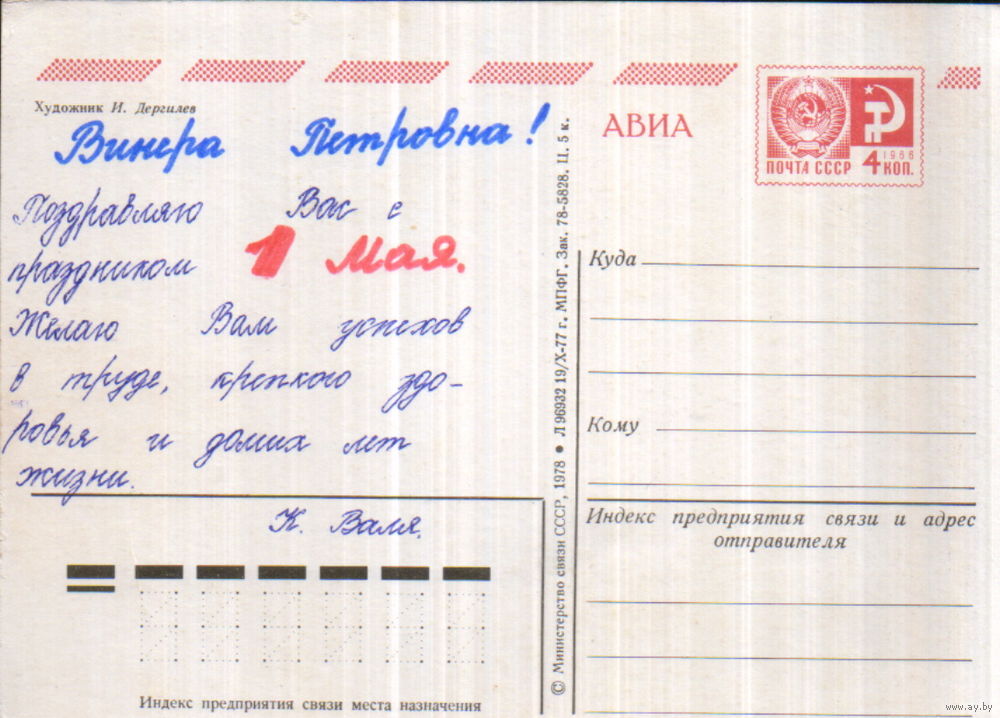 Художник И. Дергилев
Винера Петровна!
Поздравляю Вас с
праздником 1 Мая.
Желаю Вам успехов
в труде, крепкого здо-
ровья и долгих лет
жизни.
К. Валя.
Индекс предприятия связи места назначения
© Министерство связи СССР, 1978 ● Л 96932 19/X-77 г. МПФГ. Зак. 78-5828. Ц. 5 к.
АВИА
ПОЧТА СССР
1966
4 КОП.
Куда
Кому
Индекс предприятия связи и адрес
отправителя
www.ay.by